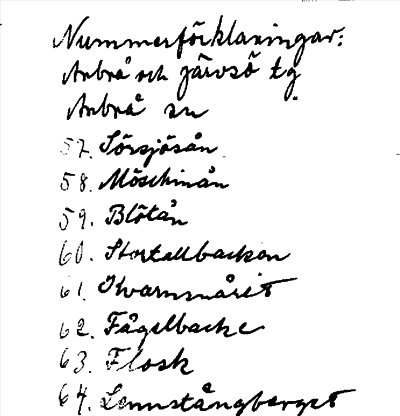 Nummerförklaringar:
Arbrå och Järvsö tg
Arbrå sn
57. Sörsjösån
58. Möschinån
59. Blötån
60. Stortallbackan
61. Kvarnsnåret
62. Fågelbacke
63. Flosk
64. Lennstångberget